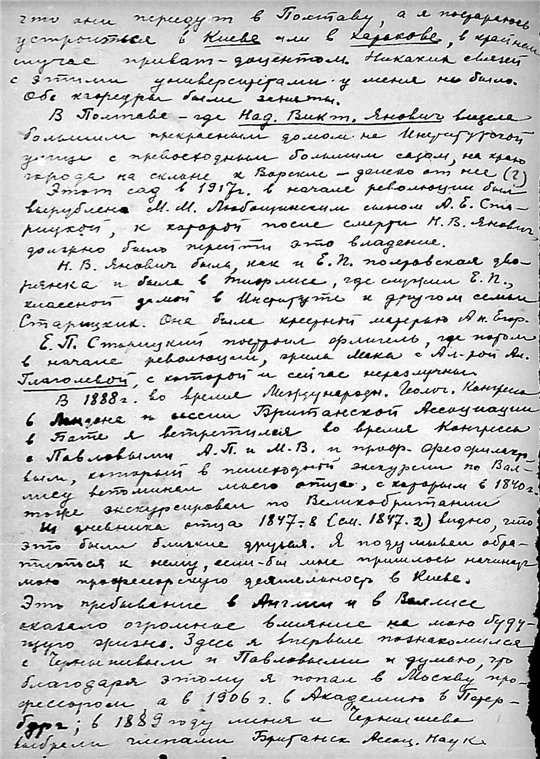 что они переедут в Полтаву, а я постараюсь
устроиться в Киеве или в Харькове, в крайнем
случае приват-доцентом. Никаких связей
с этими университетами у меня не было.
Обе кафедры были заняты.
В Полтаве – где Над. Викт. Янович владела
большим прекрасным домом на Институтской
улице с превосходным большим садом, на краю
города на склоне к Ворскле – далеко от нее (?)
Этот сад в 1917 г. в начале революции был
вырублен М. М. Любощинским сыном А. Е. Ста-
рицкой, к которой после смерти Н. В. Янович,
должно было перейти это владение.
Н. В. Янович была, как и Е. П. полтавская дво-
рянка и была в Тифлисе, где служил Е. П.,
классной дамой в Институте и другом семьи
Старицких. Она была крестной матерью Ан. Егор.
Е. П. Старицкий построил флигель, где потом
в начале революции, жила с Ал-рой Ан.
Глаголевой, с которой и сейчас неразлучны.
В 1888 г. во время Международн. Геолог. Конгресса
в Лондоне и сессии Британской Ассоциации
в Бате я встретился во время Конгресса
с Павловыми А. П. и М. В. и проф. Феофилакто-
вым, который в пешеходной экскурсии по Вал-
лису вспоминал моего отца, с которым в 1840 г.
тоже экскурсировал по Великобритании
Из дневника отца 1847-8 (см. 1847.2) видно, что
это были близкие друзья. Я подумывал обра-
титься к нему, если-бы мне пришлось начинать
мою профессорскую деятельность в Киеве.
Это пребывание в Англии и в Валлисе
оказало огромное влияние на мою буду-
щую жизнь. Здесь я впервые познакомился
с Чернышевым и Павловыми и думаю, что
благодаря этому я попал в Москву про-
фессором а в 1906 г. в Академию в Петер-
бург; в 1889 году меня и Чернышева
выбрали членами Британск. Ассоц. Наук.